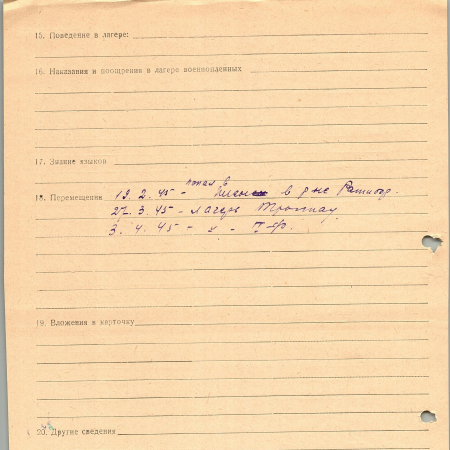 15. Поведение в лагере:
16. Наказания и поощрения в лагере военнопленных
17. Знание языков
попал в
18. Перемещения 19. 2. 45 - плен в р-не Ратибор.
27. 3. 45 - лагерь Троппау
3. 4. 45 - " -
19. Вложения в карточку
20. Другие сведения